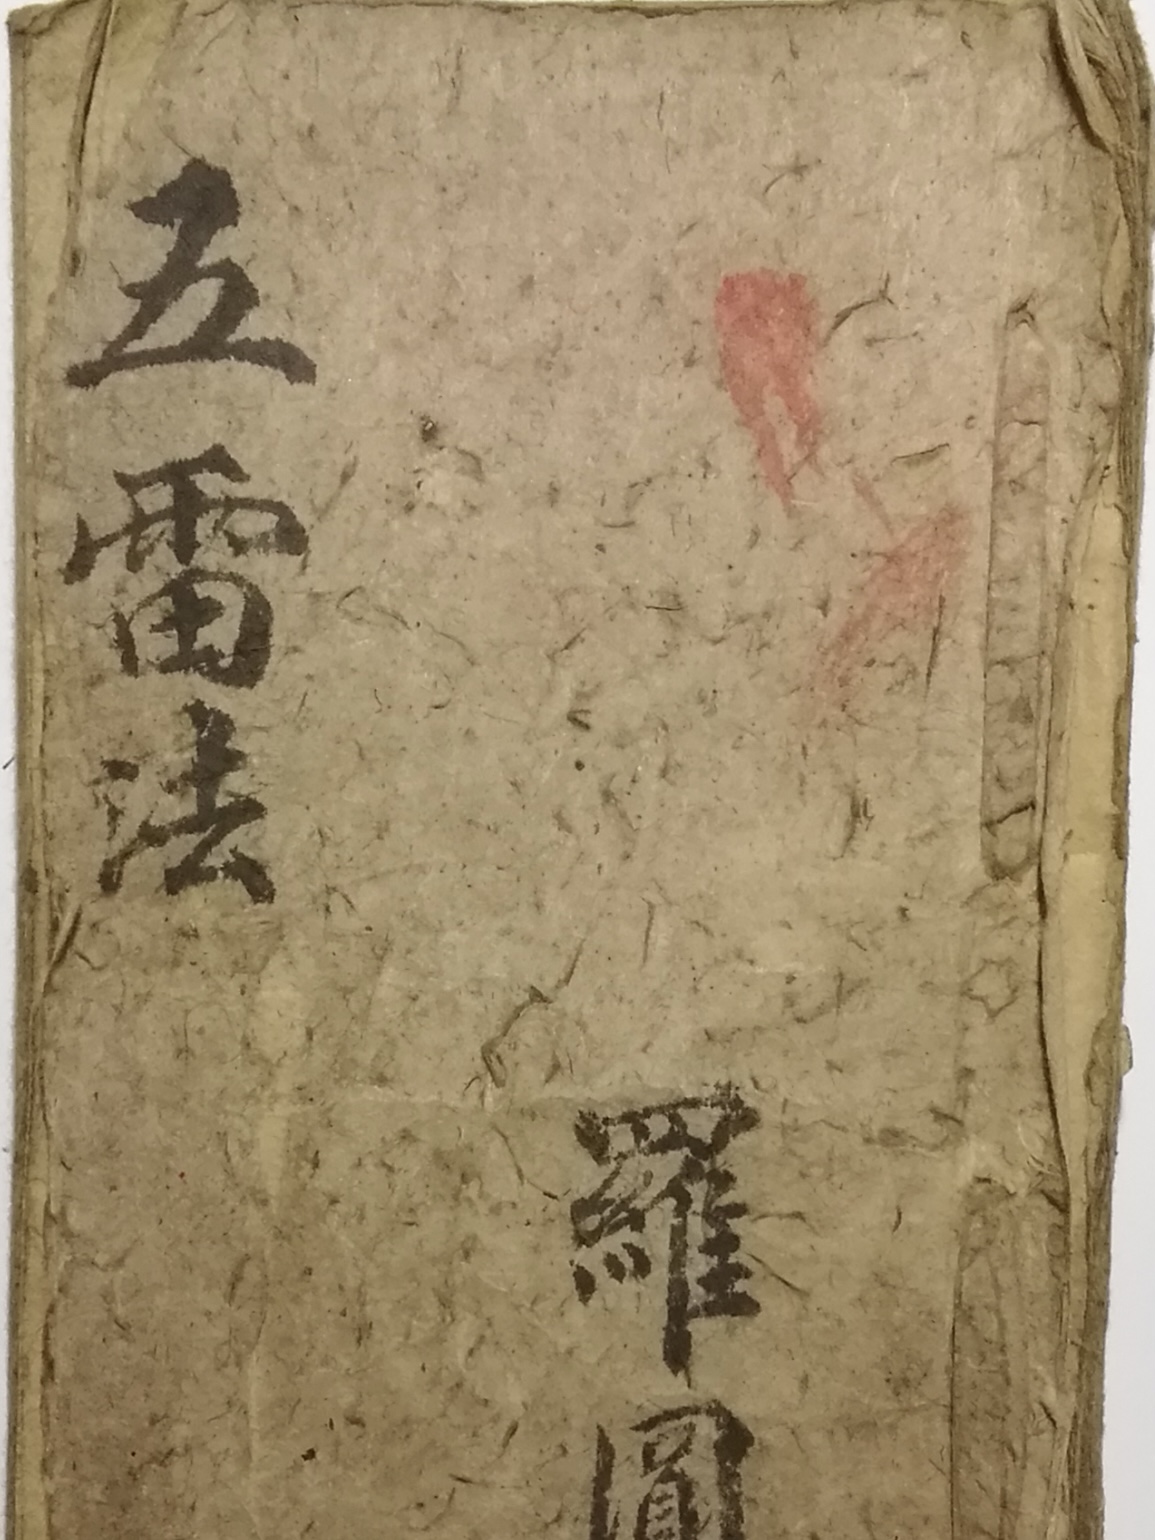 五雷法
羅圓